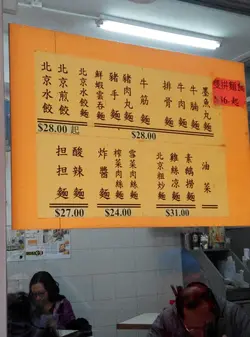 墨魚丸麵
牛腩麵
牛肉麵
排骨麵
牛筋麵
豬肉丸麵
豬手麵
鮮蝦雲吞麵
北京水餃麵
北京煎餃
北京水餃
$28.00
$28.00起
油菜
素鵝撈麵
雞絲涼麵
北京粗炒麵
$31.00
雪菜肉絲麵
榨菜肉絲麵
炸醬麵
$24.00
酸辣麵
担担麵
$27.00